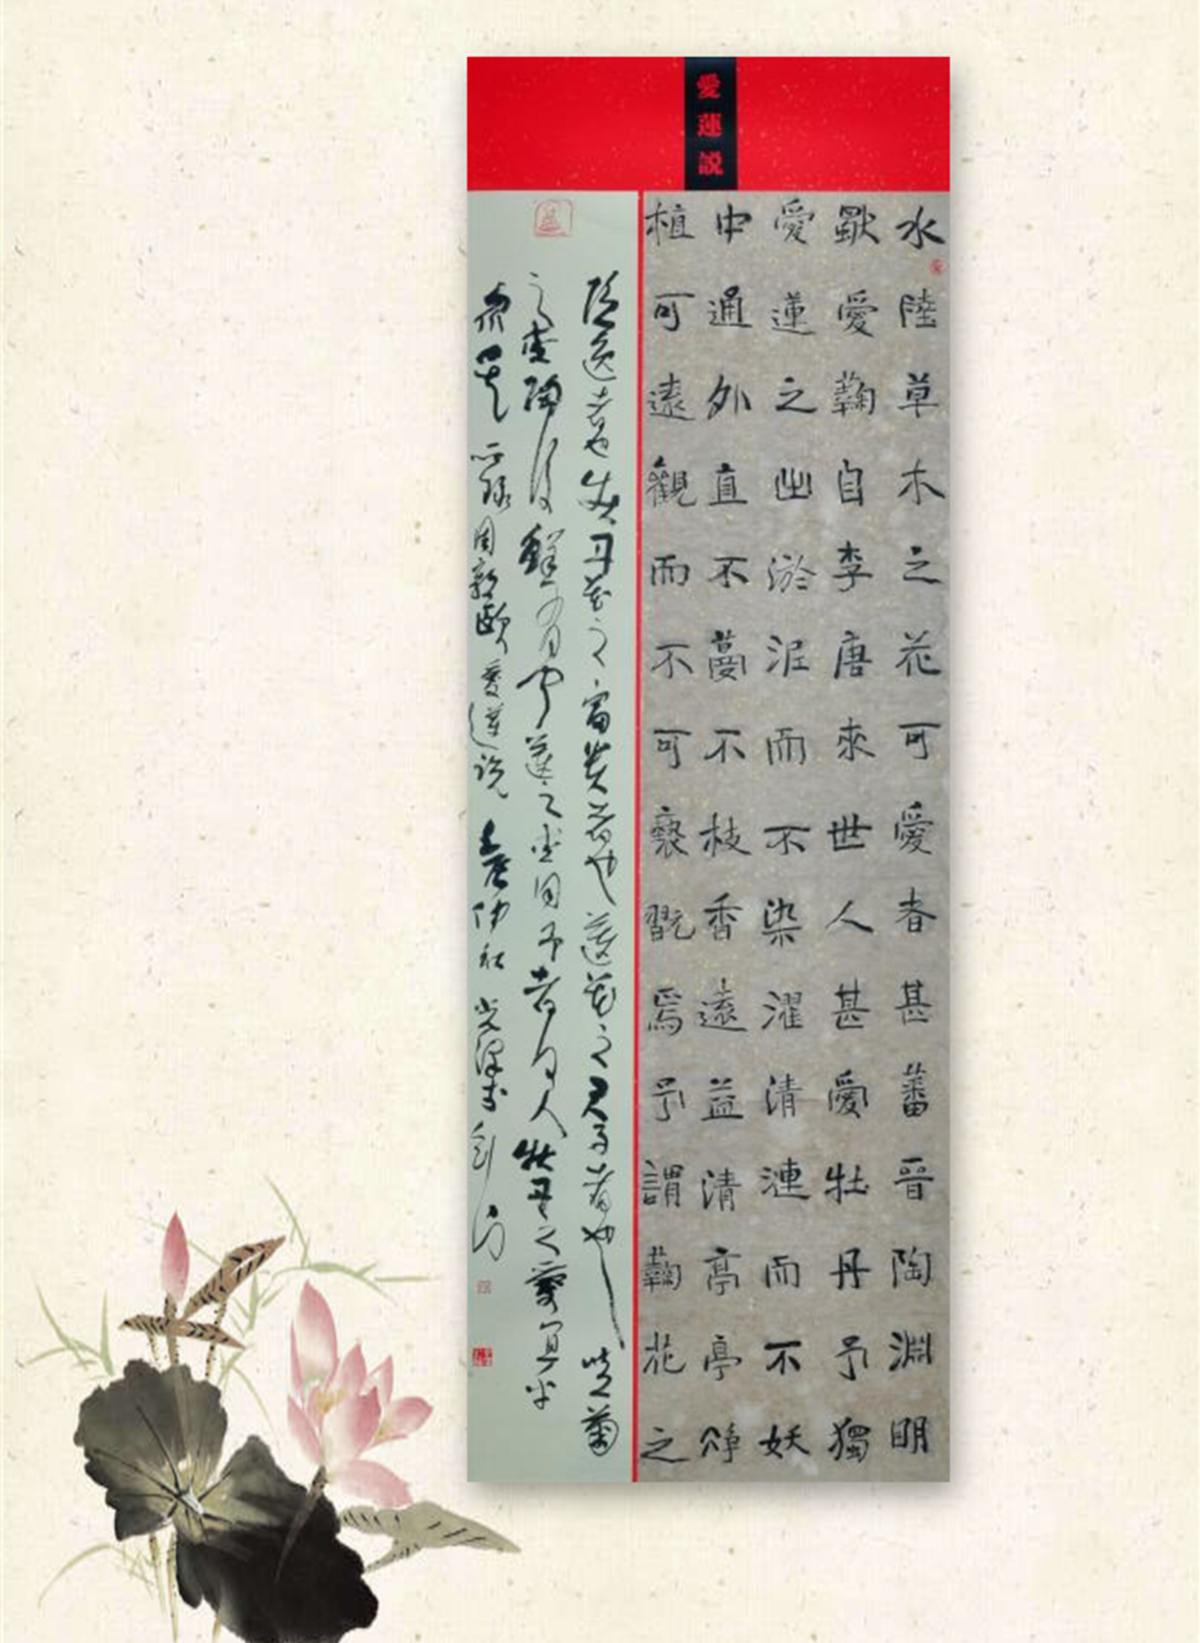 愛蓮説
水陸草木之花可愛者甚蕃晉陶淵明
獨愛蘜自李唐來世人甚愛牡丹予獨
愛蓮之出淤泥而不染濯清漣而不妖
中通外直不蔓不枝香遠益清亭亭淨
植可遠觀而不可褻翫焉予謂蘜花之
隱逸者也牡丹花之富貴者也蓮花之君子者也噫菊
之愛陶後鮮有聞蓮之愛同予者何人牡丹之愛宜乎
眾矣 錄周敦頤愛蓮説 仲秋